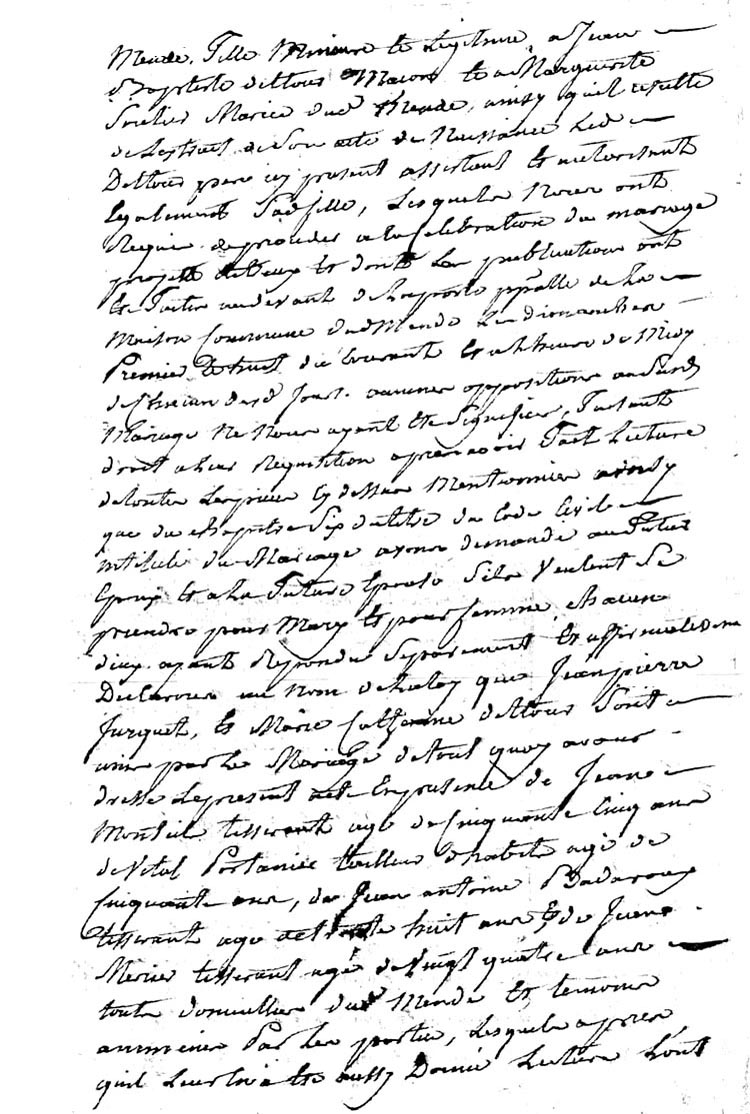 Mende, fille Mineure et Légitime a Jean
Baptiste deltour Macon et a Marguerite
mariée dud Mende, ainsy qu'il resulte
de Lextrait de son acte de Naissance Led
Deltour pere icy present assistant et authorisant
Egalement Sad fille, Lesquels Nous ont
Requis de proceder a la Celebration du mariage
projetté entreux et dont Les publications ont
Eté faites au devant de la porte ppalle de la
Maison Commune dud Mende Les dimanches
Premier et huit du Courant et a lheure de Midy
de Chacun desd Jours. aucune opposition aud
Mariage Ne Nous ayant été Signifiée, faisant
droit a leur Requisition apres avoir fait Lecture
de toutes Les pieces Cy dessus Mentionnées ainsy
que du chapitre Six du titre du Code Civil
intitulé du Mariage avons demandé au futur
Epoux et a la future Epouse Sils veulent Se
prendre pour Mary et pour femme, chacun
d'eux ayant Repondu Separement et affirmativement
Declarons au nom de la loy que Jean pierre
Jurquet, et Marie Catherine deltour Sont
unis par Le Mariage de tout quoy avons
dressé Le present acte En presence de Jean
Monteil tisserant agé de Cinquante Cinq ans
de Vital Portanier tailleur d'habits agé de
Cinquante ans, de Jean antoine Badaroux
tisserant agé de trente huit ans et de Jean
Mercier tisserant agé de Vingt quatre ans
touts domiciliés dud Mende et temoins
ammenés Par Les parties, Lesquels apres
quil Leur En a été aussy Donné Lecture L'ont